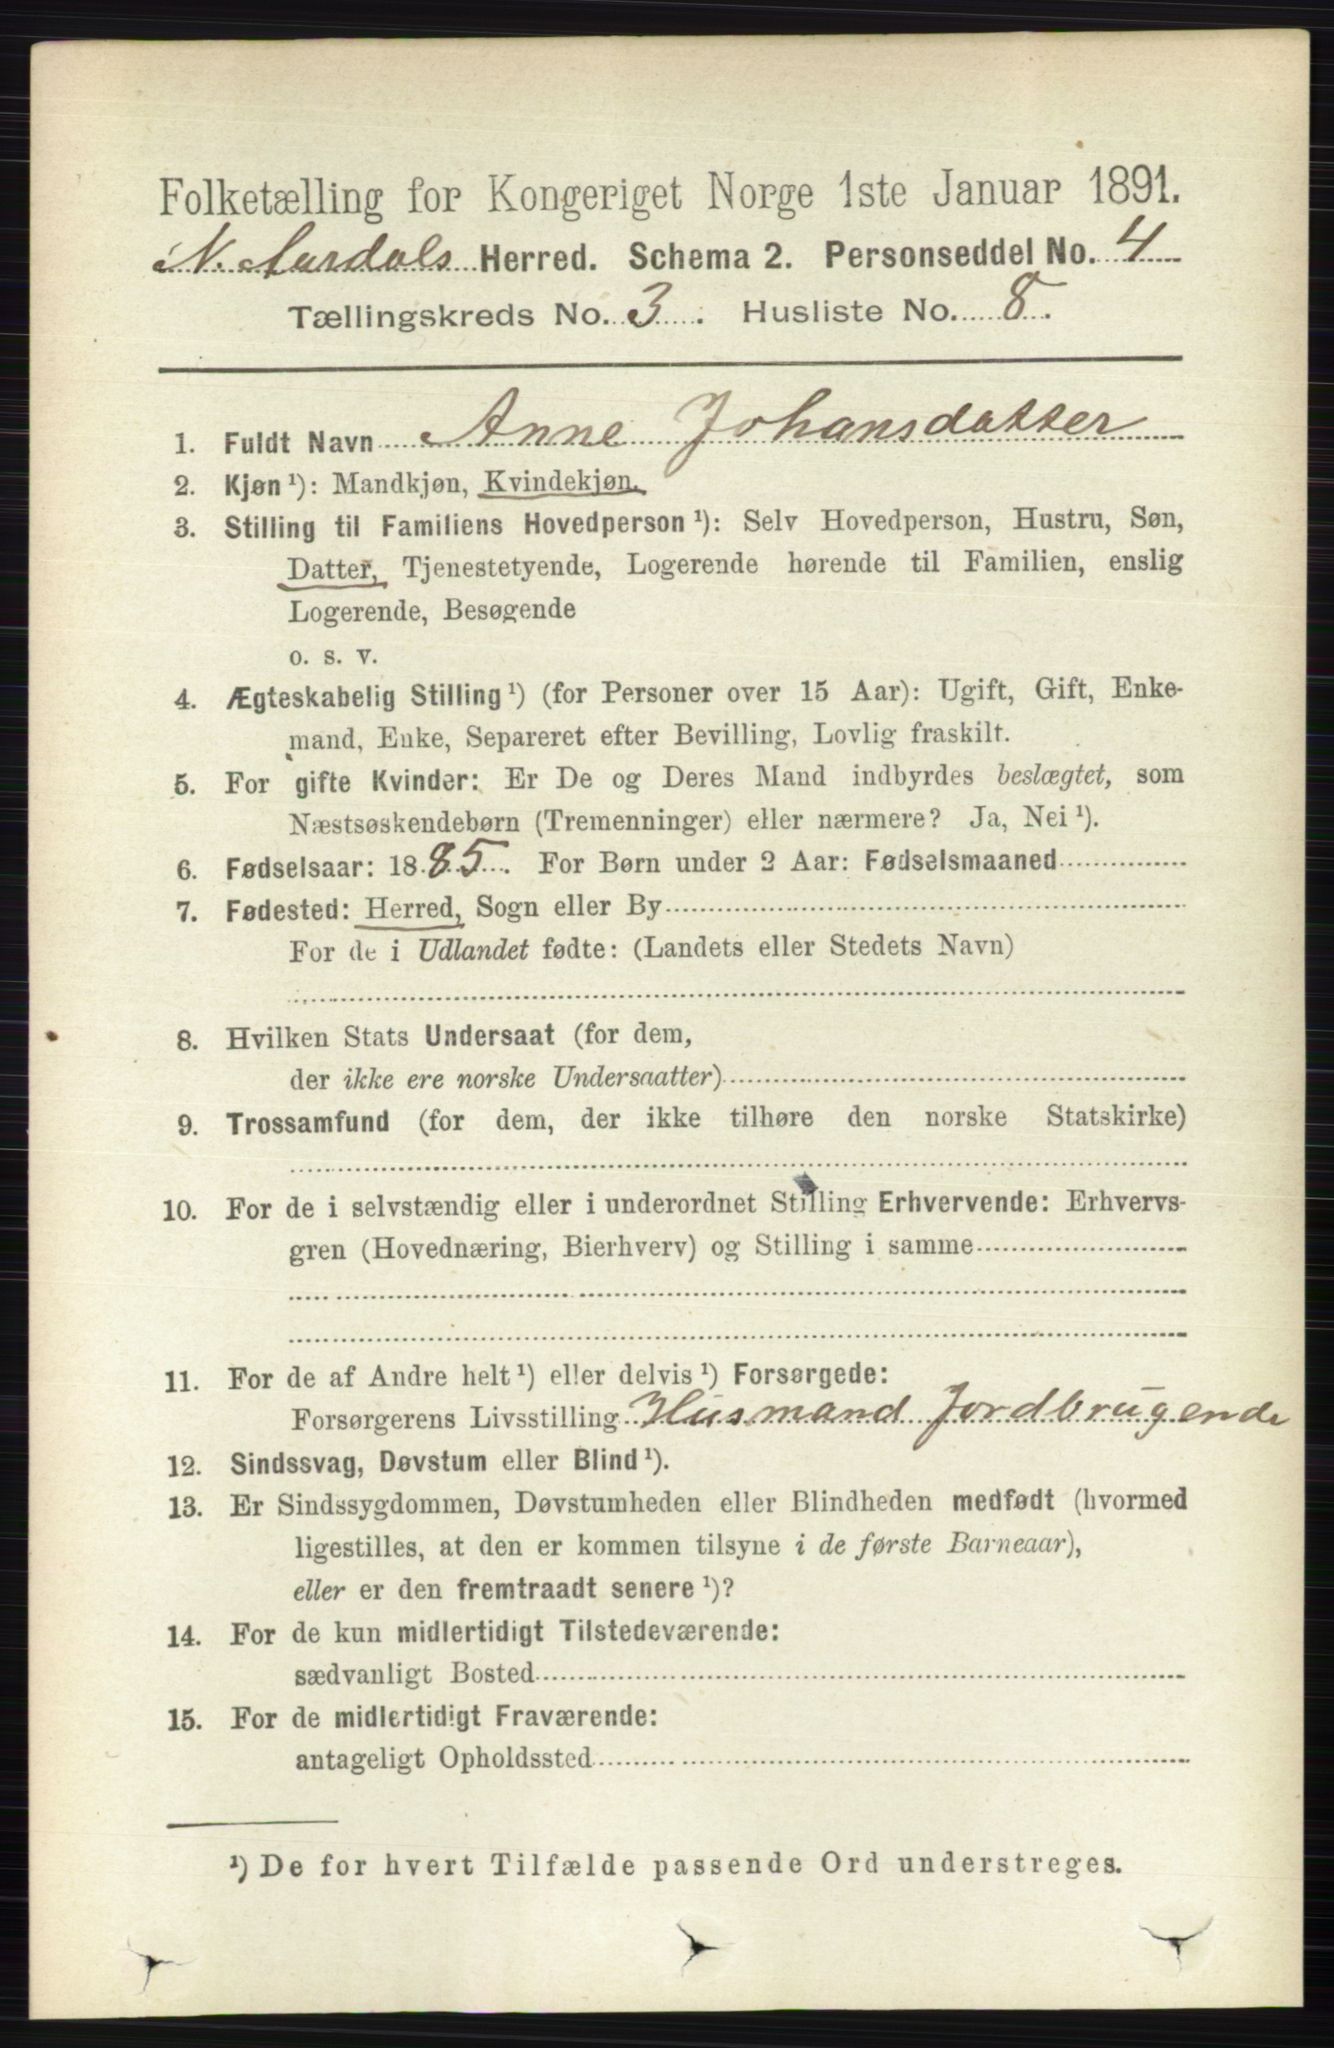 Folketælling for Kongeriget Norge 1ste Januar 1891.
N. Aurdals Herred. Schema 2. Personseddel No. 4
Tællingskreds No. 3. Husliste No. 8.
1. Fuldt Navn Anne Johansdatter
2. Kjøn¹): Mandkjøn, Kvindekjøn.
3. Stilling til Familiens Hovedperson¹): Selv Hovedperson, Hustru, Søn,
Datter, Tjenestetyende, Logerende hørende til Familien, enslig
Logerende, Besøgende
o. s. v.
4. Ægteskabelig Stilling¹) (for Personer over 15 Aar): Ugift, Gift, Enke-
mand, Enke, Separeret efter Bevilling, Lovlig fraskilt.
5. For gifte Kvinder: Er De og Deres Mand indbyrdes beslægtet, som
Næstsøskendebørn (Tremenninger) eller nærmere? Ja, Nei¹).
6. Fødselsaar: 1885. For Børn under 2 Aar: Fødselsmaaned
7. Fødested: Herred, Sogn eller By
For de i Udlandet fødte: (Landets eller Stedets Navn)
8. Hvilken Stats Undersaat (for dem,
der ikke ere norske Undersaatter)
9. Trossamfund (for dem, der ikke tilhøre den norske Statskirke)
10. For de i selvstændig eller i underordnet Stilling Erhvervende: Erhvervs-
gren (Hovednæring, Bierhverv) og Stilling i samme
11. For de af Andre helt¹) eller delvis¹) Forsørgede:
Forsørgerens Livsstilling Husmand Jordbrugende
12. Sindssvag, Døvstum eller Blind¹).
13. Er Sindssygdommen, Døvstumheden eller Blindheden medfødt (hvormed
ligestilles, at den er kommen tilsyne i de første Barneaar),
eller er den fremtraadt senere¹)?
14. For de kun midlertidigt Tilstedeværende:
sædvanligt Bosted
15. For de midlertidigt Fraværende:
antageligt Opholdssted
¹) De for hvert Tilfælde passende Ord understreges.